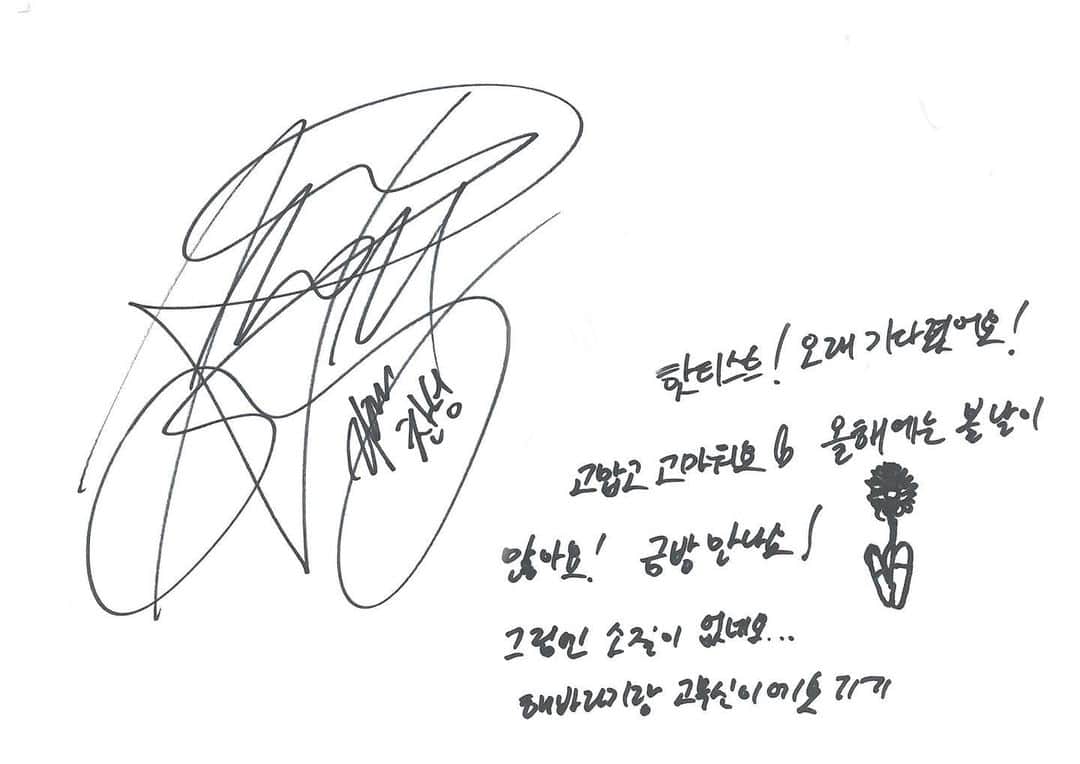 찬성
핫티스트! 오래 기다렸어요!
고맙고 고마워요 올해에는 볼날이
많아요! 금방 만나요!
그림엔 소질이 없네요...
해바라기랑 고무신이에요 ㄱㄱ